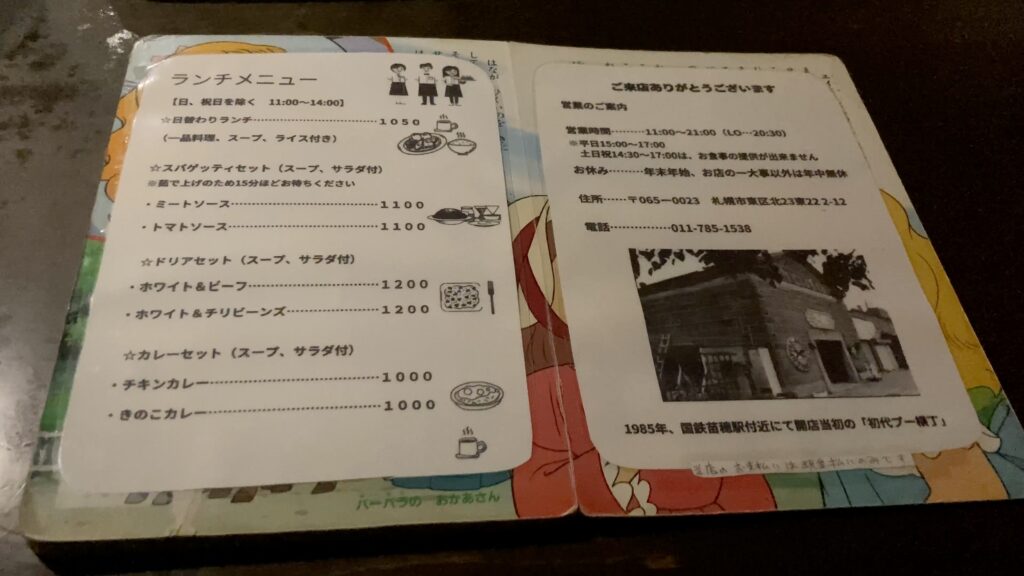 ランチメニュー
【日、祝日を除く 11:00～14:00】
☆日替わりランチ………………1050
（一品料理、スープ、ライス付き）
☆スパゲッティセット（スープ、サラダ付）
※茹で上げのため15分ほどお待ちください
・ミートソース………………1100
・トマトソース………………1100
☆ドリアセット（スープ、サラダ付）
・ホワイト＆ビーフ………………1200
・ホワイト＆チリビーンズ………………1200
☆カレーセット（スープ、サラダ付）
・チキンカレー………………1000
・きのこカレー………………1000
バーバラの おかあさん
ご来店ありがとうございます
営業のご案内
営業時間………11:00～21:00（LO…20:30）
※平日15:00～17:00
土日祝14:30～17:00は、お食事の提供が出来ません
お休み………年末年始、お店の一大事以外は年中無休
住所……〒065ー0023 札幌市東区北23東22 2-12
電話………………011-785-1538
1985年、国鉄苗穂駅付近にて開店当初の「初代プー横丁」
当店のお支払いは現金払いのみです